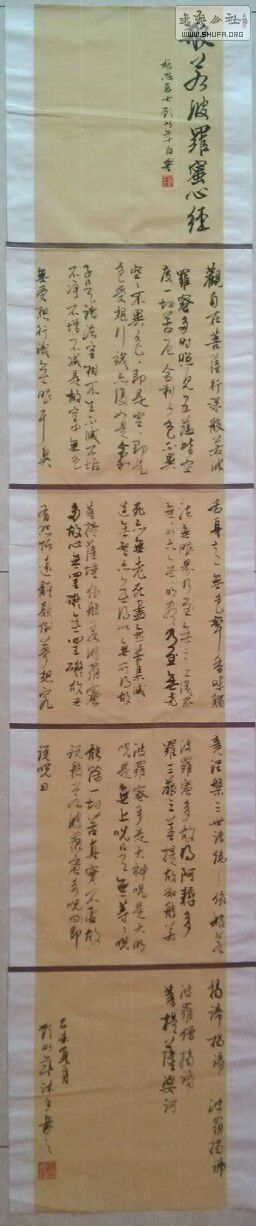 書法公社
WWW.SHUFA.ORG
般若波羅蜜心經
觀自在菩薩行深般若波
羅蜜多時照見五蘊皆空
度一切苦厄舍利子色不異
空空不異色色即是空空即是
色受想行識亦復如是舍利
子是諸法空相不生不滅不垢
不淨不增不減是故空中無色
無受想行識無眼耳鼻
舌身意無色聲香味觸
法無眼界乃至無意識界
無無明亦無無明盡乃至無老
死亦無老死盡無苦集滅
道無智亦無得以無所得故
菩提薩埵依般若波羅蜜
多故心無罣礙無罣礙故無
有恐怖遠離顛倒夢想究
竟涅槃三世諸佛依般若
波羅蜜多故得阿耨多
羅三藐三菩提故知般若
波羅蜜多是大神咒是大明
咒是無上咒是無等等咒
能除一切苦真實不虛故
說般若波羅蜜多咒即
說咒曰
揭諦揭諦 波羅揭諦
波羅僧揭諦
菩提薩婆訶